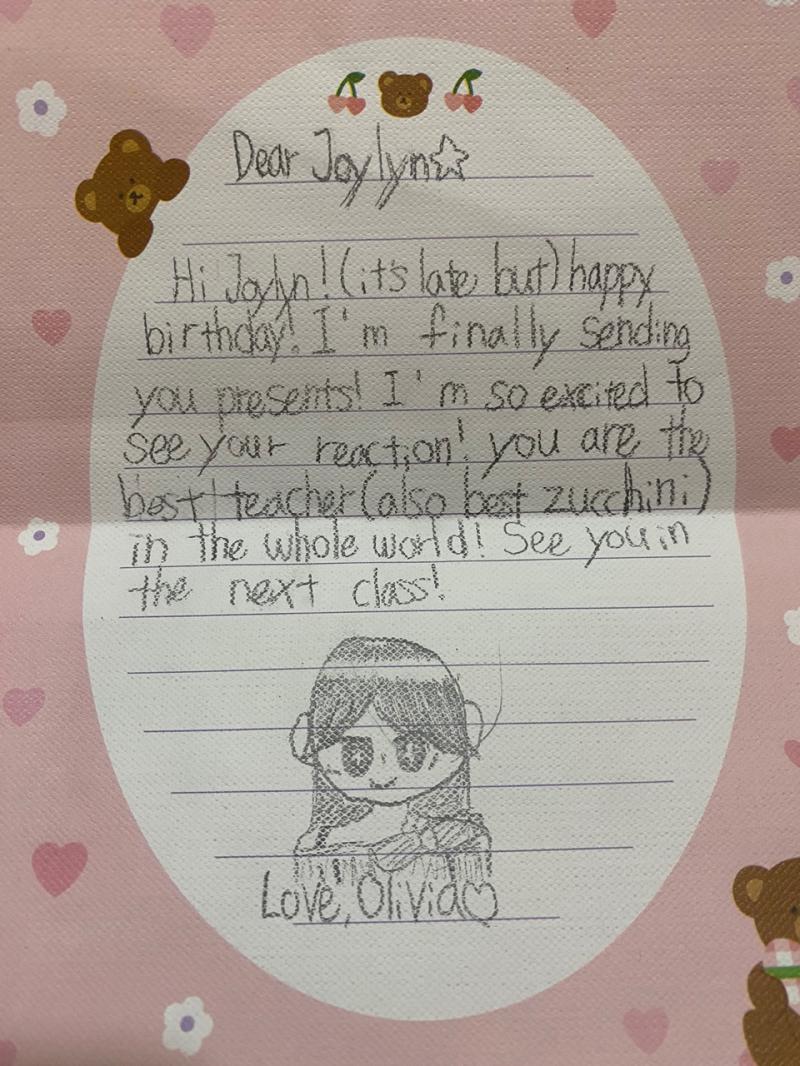 Dear Joylyn☆
Hi Joylyn! (it's late but) happy
birthday! I'm finally sending
you presents! I'm so excited to
see your reaction! you are the
best teacher (also best zucchini)
in the whole world! See you in
the next class!
Love, Olivia♡